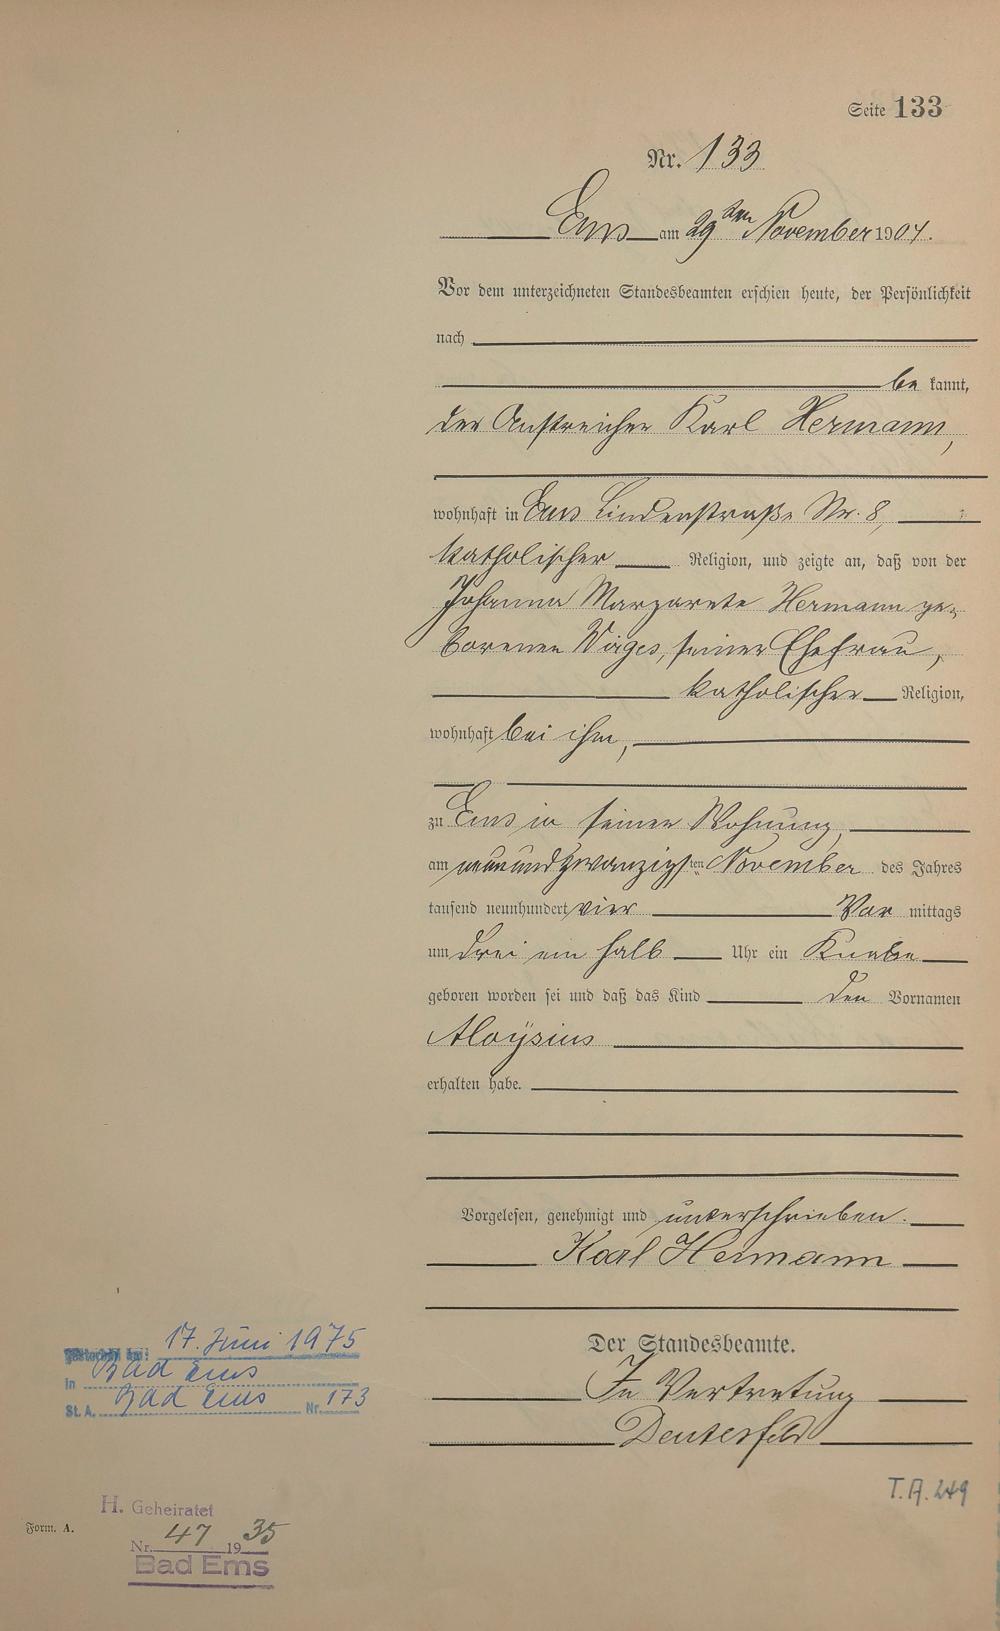 Seite 133
Nr. 133
Ems am 29ten November 1904.
Vor dem unterzeichneten Standesbeamten erschien heute, der Persönlichkeit
nach
be kannt,
der Anstreicher Karl Hermann,
wohnhaft in Ems Lindenstraße Nr. 8,
katholischer Religion, und zeigte an, daß von der
Johanna Margarete Hermann ge-
borenen Wages, seiner Ehefrau,
katholischer Religion,
wohnhaft bei ihm,
zu Ems in seiner Wohnung,
am neunundzwanzigsten November des Jahres
tausend neunhundert vier Vor mittags
um drei ein halb Uhr ein Knabe
geboren worden sei und daß das Kind den Vornamen
Aloÿsius
erhalten habe.
Vorgelesen, genehmigt und unterschrieben.
Karl Hermann
Der Standesbeamte.
In Vertretung
17. Juni 1975
in Bad Ems
St. A. Bad Ems Nr. 173
T. A. 249
H. Geheiratet
Form. A.
Nr. 47 1935
Bad Ems